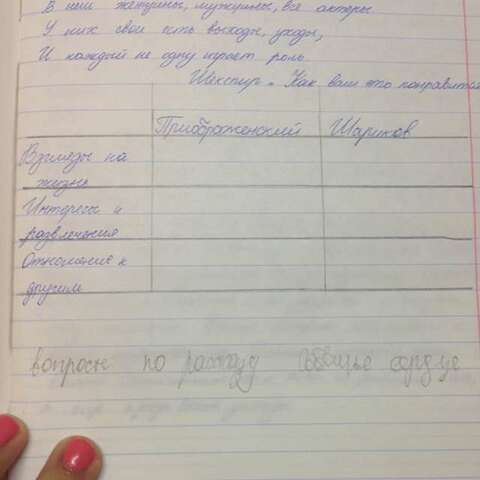 В нём женщины, мужчины, все актёры
У них свои есть выходы, уходы,
И каждый не одну играет роль
Шекспир „Как вам это понравится
Приображенский Шариков
Взгляды на
жизнь
Интересы и
развлечения
Отношение к
другим
вопросы по рассказу Собачье сердце